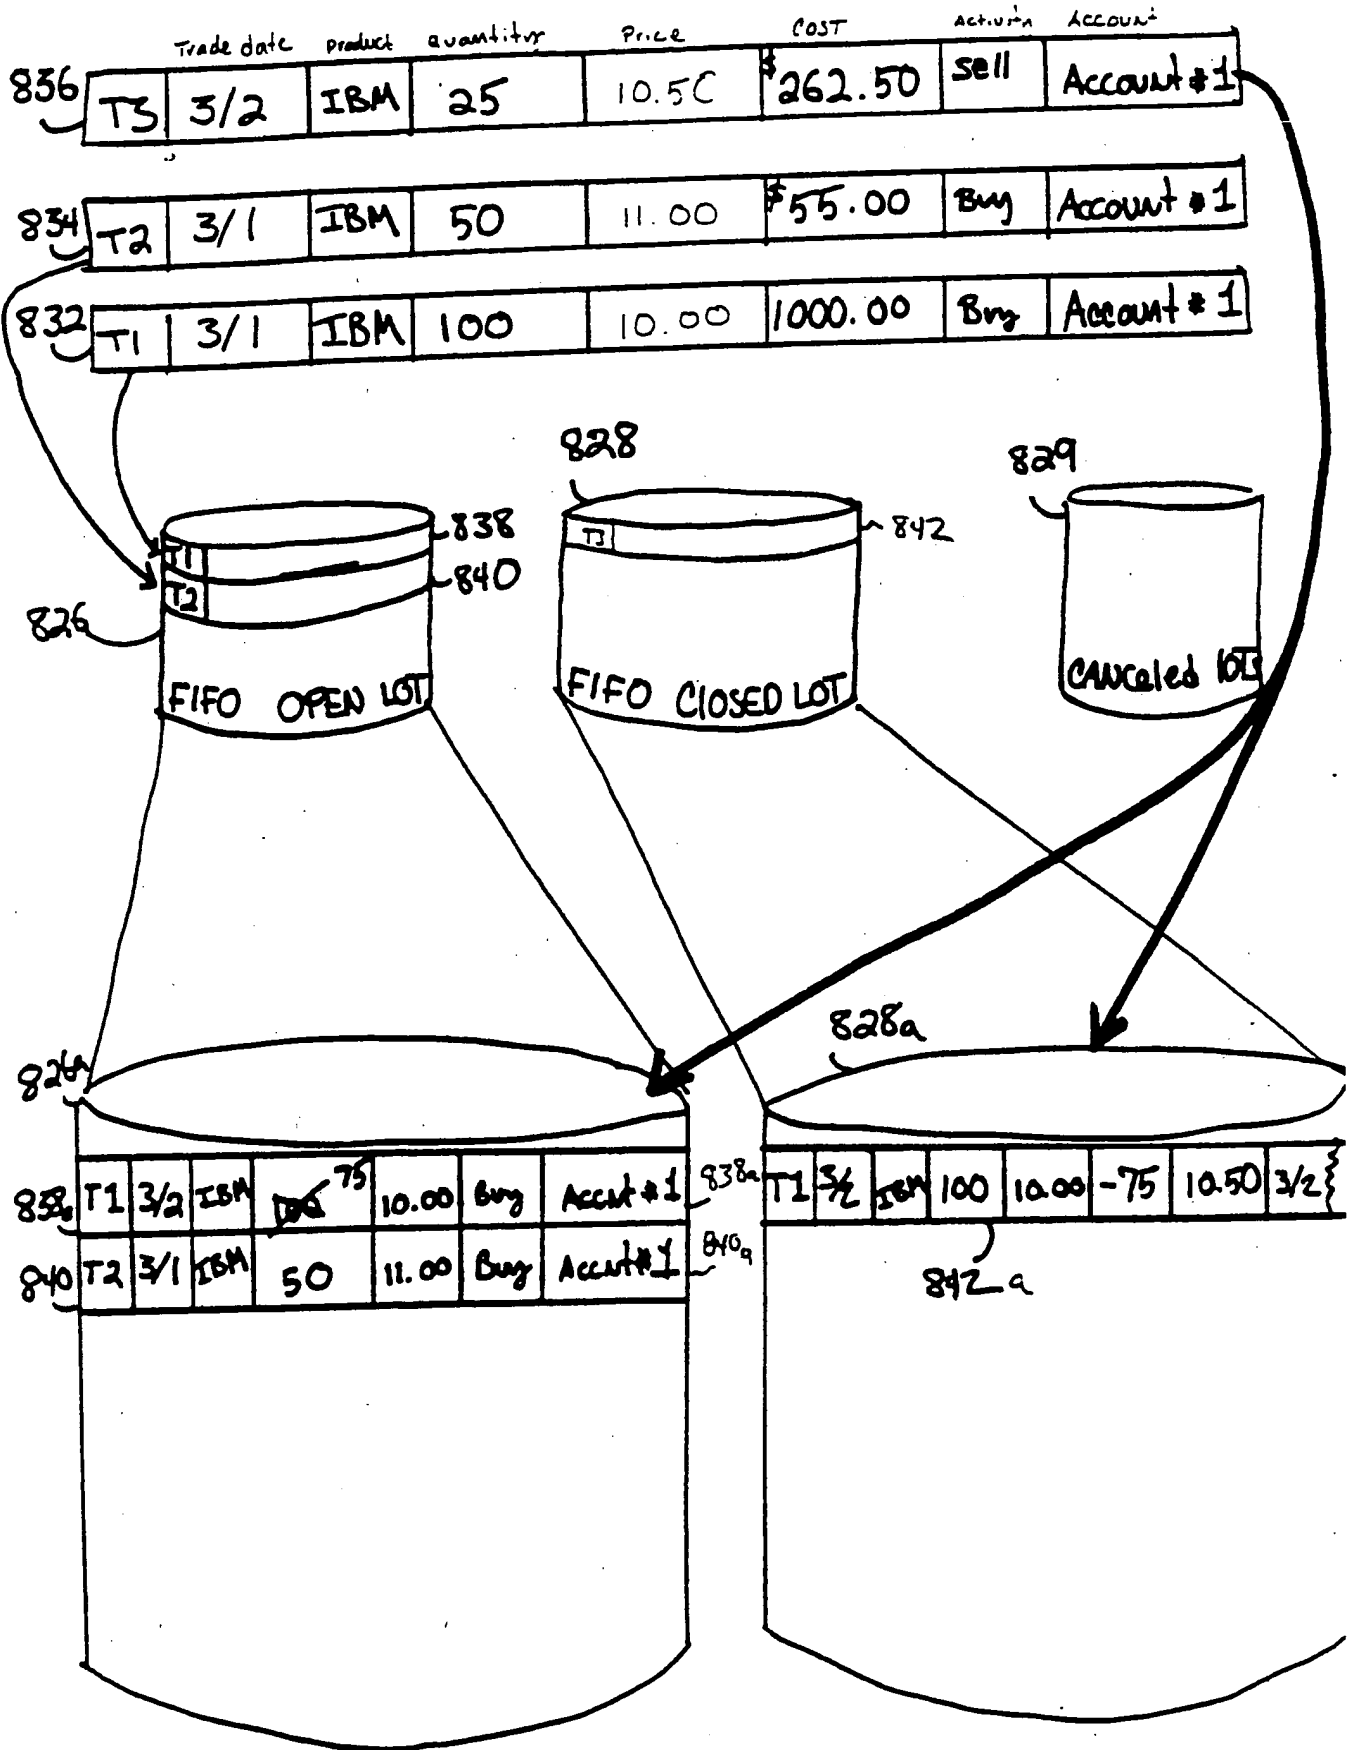 Trade date Product Quantity Price COST Activity Account
836 T3 3/2 IBM 25 10.50 $262.50 Sell Account #1
834 T2 3/1 IBM 50 11.00 $55.00 Buy Account #1
832 T1 3/1 IBM 100 10.00 1000.00 Buy Account #1
828
829
838
T3
842
T1
840
T2
826
FIFO OPEN LOT
FIFO CLOSED LOT
CANCELED LOTS
828a
826a
838a T1 3/2 IBM 100 75 10.00 Buy Accnt #1 838a
T1 3/2 IBM 100 10.00 -75 10.50 3/2
840 T2 3/1 IBM 50 11.00 Buy Accnt #1 840a
842a